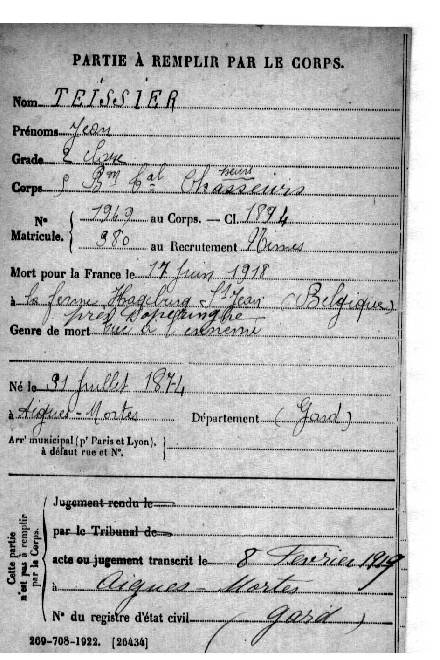 PARTIE À REMPLIR PAR LE CORPS.
Nom TEISSIER
Prénoms Jean
Grade 2e classe
Corps Chasseurs
N° Matricule. 1949 au Corps. — Cl. 1894
980 au Recrutement Nîmes
Mort pour la France le 17 Juin 1918
à la ferme Hageburg St Jean (Belgique)
près Poperinghe
Genre de mort tué à l'ennemi
Né le 31 Juillet 1874
à Aigues-Mortes Département (Gard)
Arrt municipal (pr Paris et Lyon), à défaut rue et N°.
Cette partie n'est pas à remplir par le Corps.
Jugement rendu le
par le Tribunal de
acte ou jugement transcrit le 8 Février 1919
à Aigues-Mortes
N° du registre d'état civil (Gard)
269-708-1922. [26434]